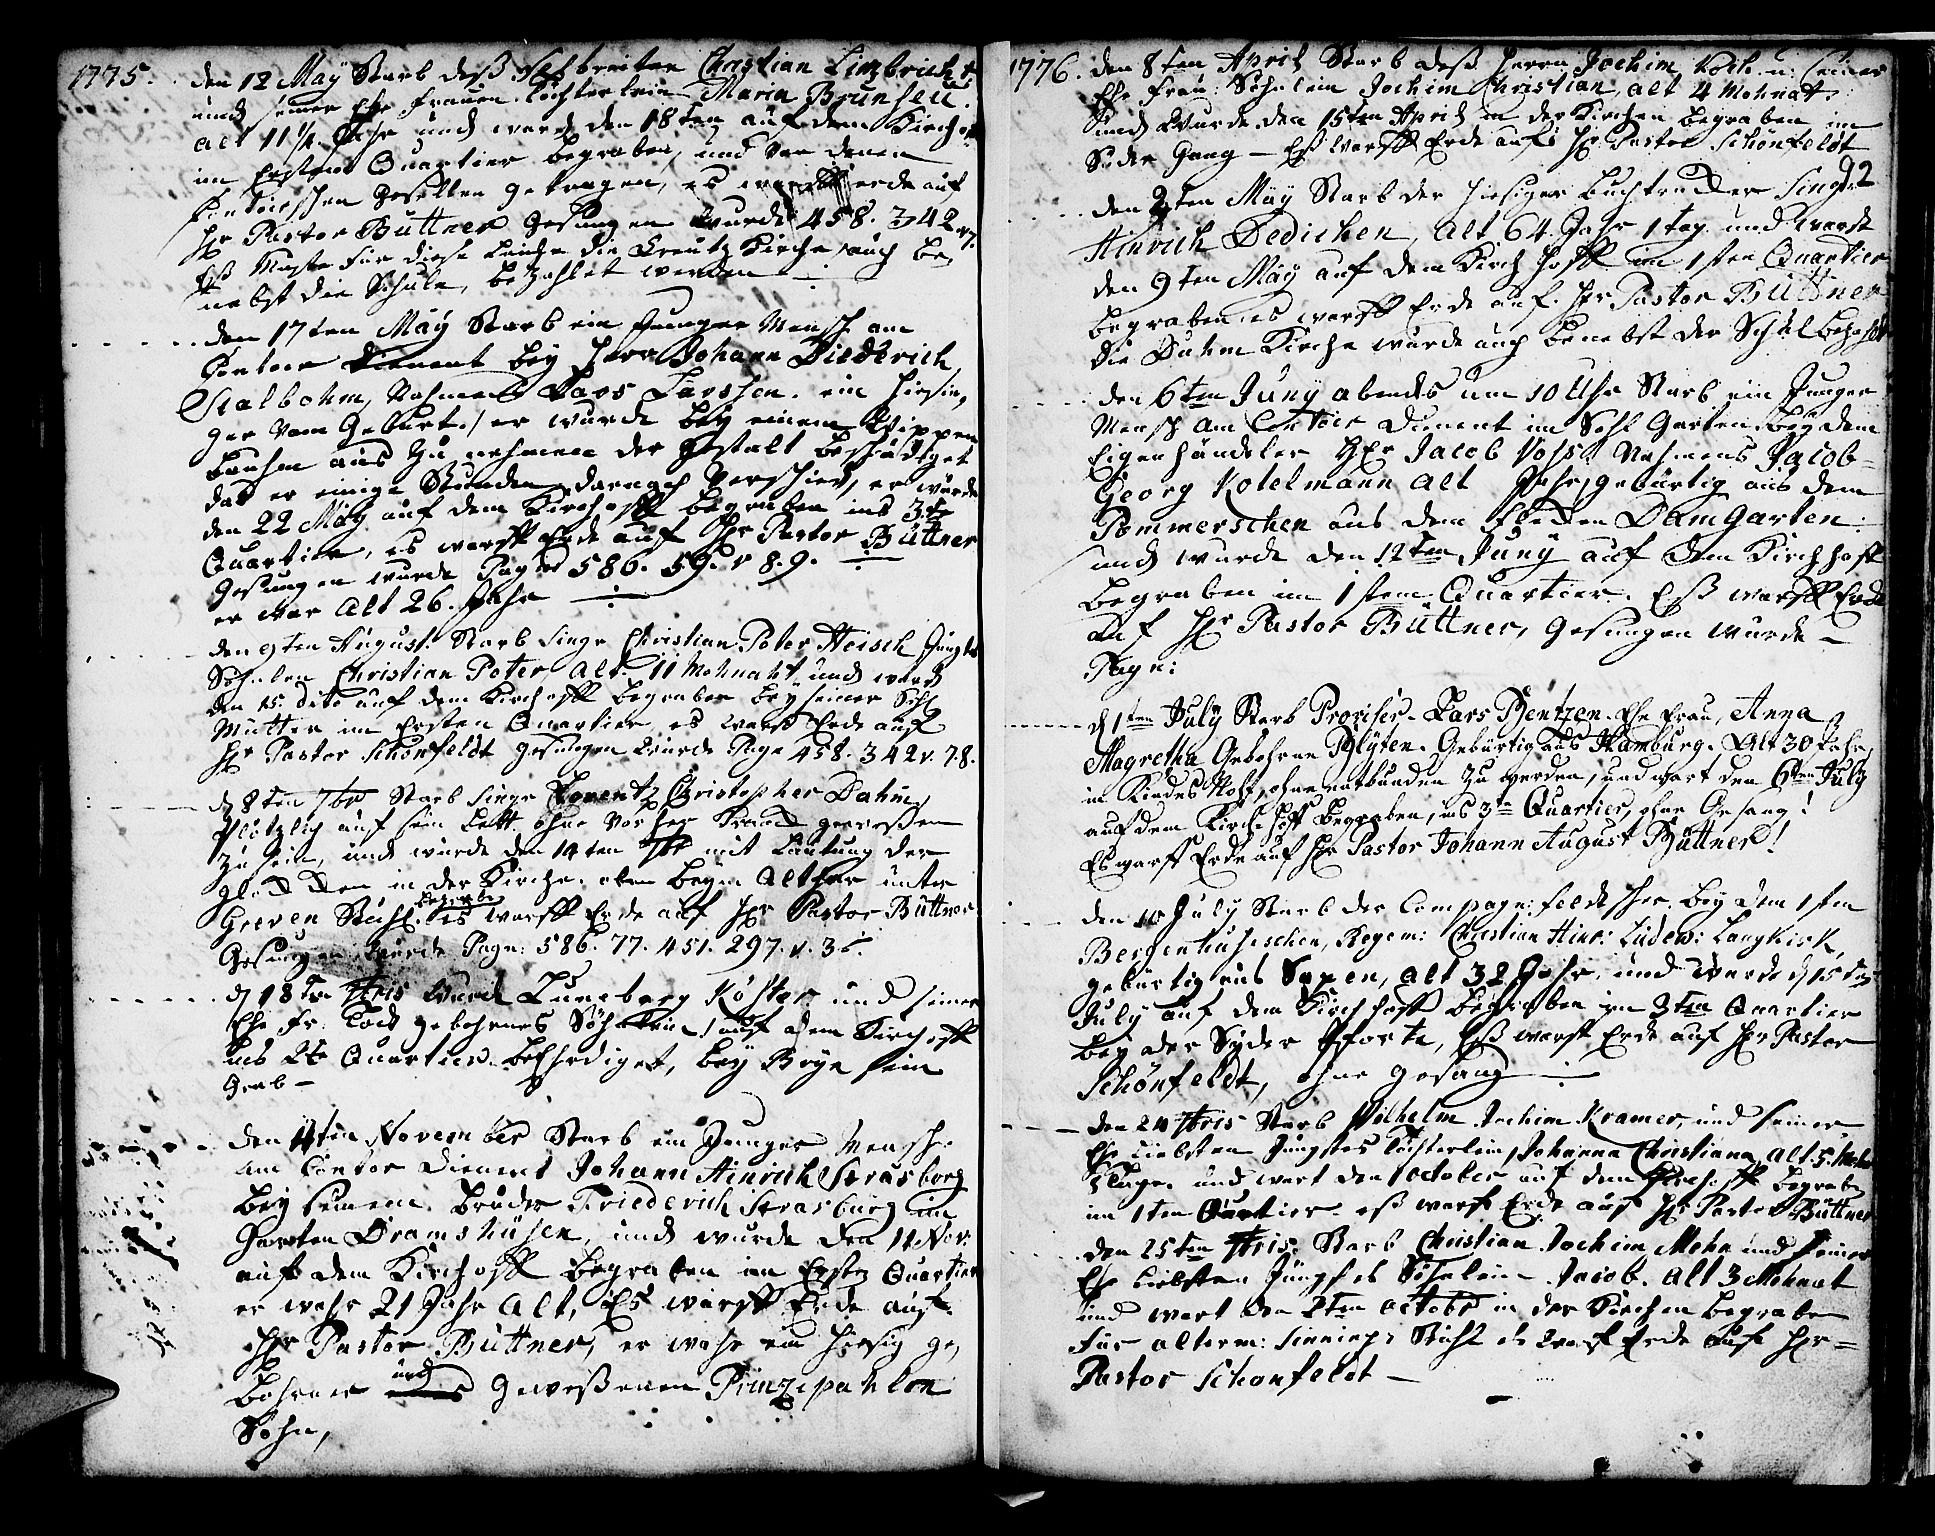 1775. den 12 Maÿ Starb deß Christian Limbrecht
und seiner Ehe Frauen Töchterlein Maria Brunseli.
alt 11½ Jahr und ward den 18ten auf dem Kirchoff
im Ersten Quartier begraben, und von denen
Contoirschen Gesellen getragen, es warff erde auf
Hr Pastor Büttner Gesungen wurde 458. 342 v 7.
Eß Muste für diese Leiche die Creutz Kirche auch be,
nebst die Schule, bezahlet werden ÷
den 17ten Maÿ Starb ein Junger Mensch am
Contoir dienent beÿ Herr Johann Diederich
Stalbohm, Nahmens Lars Larssen. ein hiesi,
ger Vom Geburt, er wurde beÿ einem Wippen
Bauhm aus zu nehmen der Gestalt beschädiget
das er einige Stunden darnach Verschied, er wurde
den 22 Maÿ auf dem Kirchoff begraben ins 3te
Quartier, es warff Erde auf Hr Pastor Büttner
Gesungen wurde Pagn 586. 59. v 8. 9. ÷
er war alt 26. Jahr ÷
den 9ten August. Starb Singr Christian Peter Heisch Jungs
Söhnlen Christian Peter, alt. 11 Mohnaht und ward
den 15. dito auf dem Kirchoff begraben beÿ seiner Sehl
Mutter im Ersten Quartier es warff Erde auf
Hr Pastor Schönfeldt gesungen wurde Pagn 458. 342 v. 7.8.
d 8ten 7br Starb Singr Lorentz Christopher Dahm,
Plötzlich auf sein Bett ohne Vorher Kranck geweßen
zu sein, und wurde den 14ten 7br mit Lautung der
Glocken in der Kirche. oben beÿm Althar unter
Greven Stuhl begraben es warff Erde auf Hr Pastor Büttner
Gesungen wurde Pagn: 586. 77. 451. 297. v. 36
d 18ten 7bris wurde Luneberg Köster und seiner
Ehe Fr: Todt gebohrnes Söhnlein auf dem Kirchoff
ins 2te Quartier beErdiget, beÿ Böÿe sein
Grab –
den 4ten November Starb ein Junger Mensch.
am Contor dienent Johann Hinrich Strasborg
beÿ seinem Bruder Friederich Strasburg im
Garten Bramshusen, und wurde den 11 Nov:
auf dem Kirchoff begraben im Ersten Quartier
er wahr 21 Jahr alt, Es warff Erde auf
Hr Pastor Büttner, er wahr ein hiesig ge,
bohrner und geweßenen Prinzipahlen
Sohn,
1776. den 8ten Aprill Starb deß Herrn Jochim Koch u: seiner
Ehe Frau: Söhnlein Jochim Christian, alt 4 Mohnat.
und Wurde den 15ten Aprill in der Kirchen begraben im
Süder Gang – Eß warff Erde auf Hr Pastor Schönfeldt
92
den 2ten Maÿ Starb der hiesiger Buchtrucker Singr
Hinrich Dedichen, alt 64 Jahr 1 tag. und ward
den 9ten Maÿ auf dem Kirch Hoff im 1sten Quartier
begraben es warff Erde auf. Hr Pastor Büttner
die Duhm Kirche wurde auch benebst der Schul bezahlt
den 6ten Junÿ abends um 10 Uhr Starb ein Junger
Mensch am Contoir dienent im Sohl Garten beÿ dem
Eigenhändeler Hr Jacob Voss. Nahmens Jacob
Georg Kotelmann alt Jahr, gebürtig aus dem
Pommerschen aus dem flecken Damgarten
und wurde den 12ten Junÿ auf dem Kirchhoff
begraben im 1sten Quartier. Eß warff Erde
auf Hr Pastor Büttner, Gesungen wurde –
Pagn:
d 1ten Julÿ Starb Proviser Lars Bentzen Ehe Frau, Anna
Magretha Gebohrne Plÿten. Gebürtig aus Hamburg. Alt 30 Jahr,
in Kindes Noht, ohne entbunden zu werden, und wart den 6ten Julÿ
auf dem Kirch Hoff begraben, ins 3te Quartier, ohne Gesang!
Es warff Erde auf Hr Pastor Johann August Büttner!
den 10 Julÿ Starb der Compagn: feldtsher beÿ dem 1sten
Bergenhusischen, Regem: Christian Hinr: Ludew: Langkisk,
gebürtig aus Sagen, alt 32 Jahr, und Wurde d 15ten
Julÿ auf dem Kirchhoff begraben im 3ten Quartier
beÿ der Sÿder Pforte, Eß warff Erde auf Hr Pastor
Schönfeldt, ohne Gesang ÷
den 24 7bris Starb Wilhelm Jochim Kramer, und seiner
Ehe Liebsten Jüngstes Töchterlein, Johanna Christiana, alt 5. Mohn
5 Tage. und wart den 1 october auf dem Kirchoff begrab
im 1ten Quartier. eß warff Erde auf Hr Pastor Büttner
den 25ten 7bris. Starb Christian Jochim Mehn und seiner
Ehe Liebsten Jüngstes Söhnlein Jacob. alt 3 Mohnat
und wart den 2ten octobr in der Kirchen begraben
für alterm: Stuhl es warff Erde auf Hr
Pastor Schönfeldt –